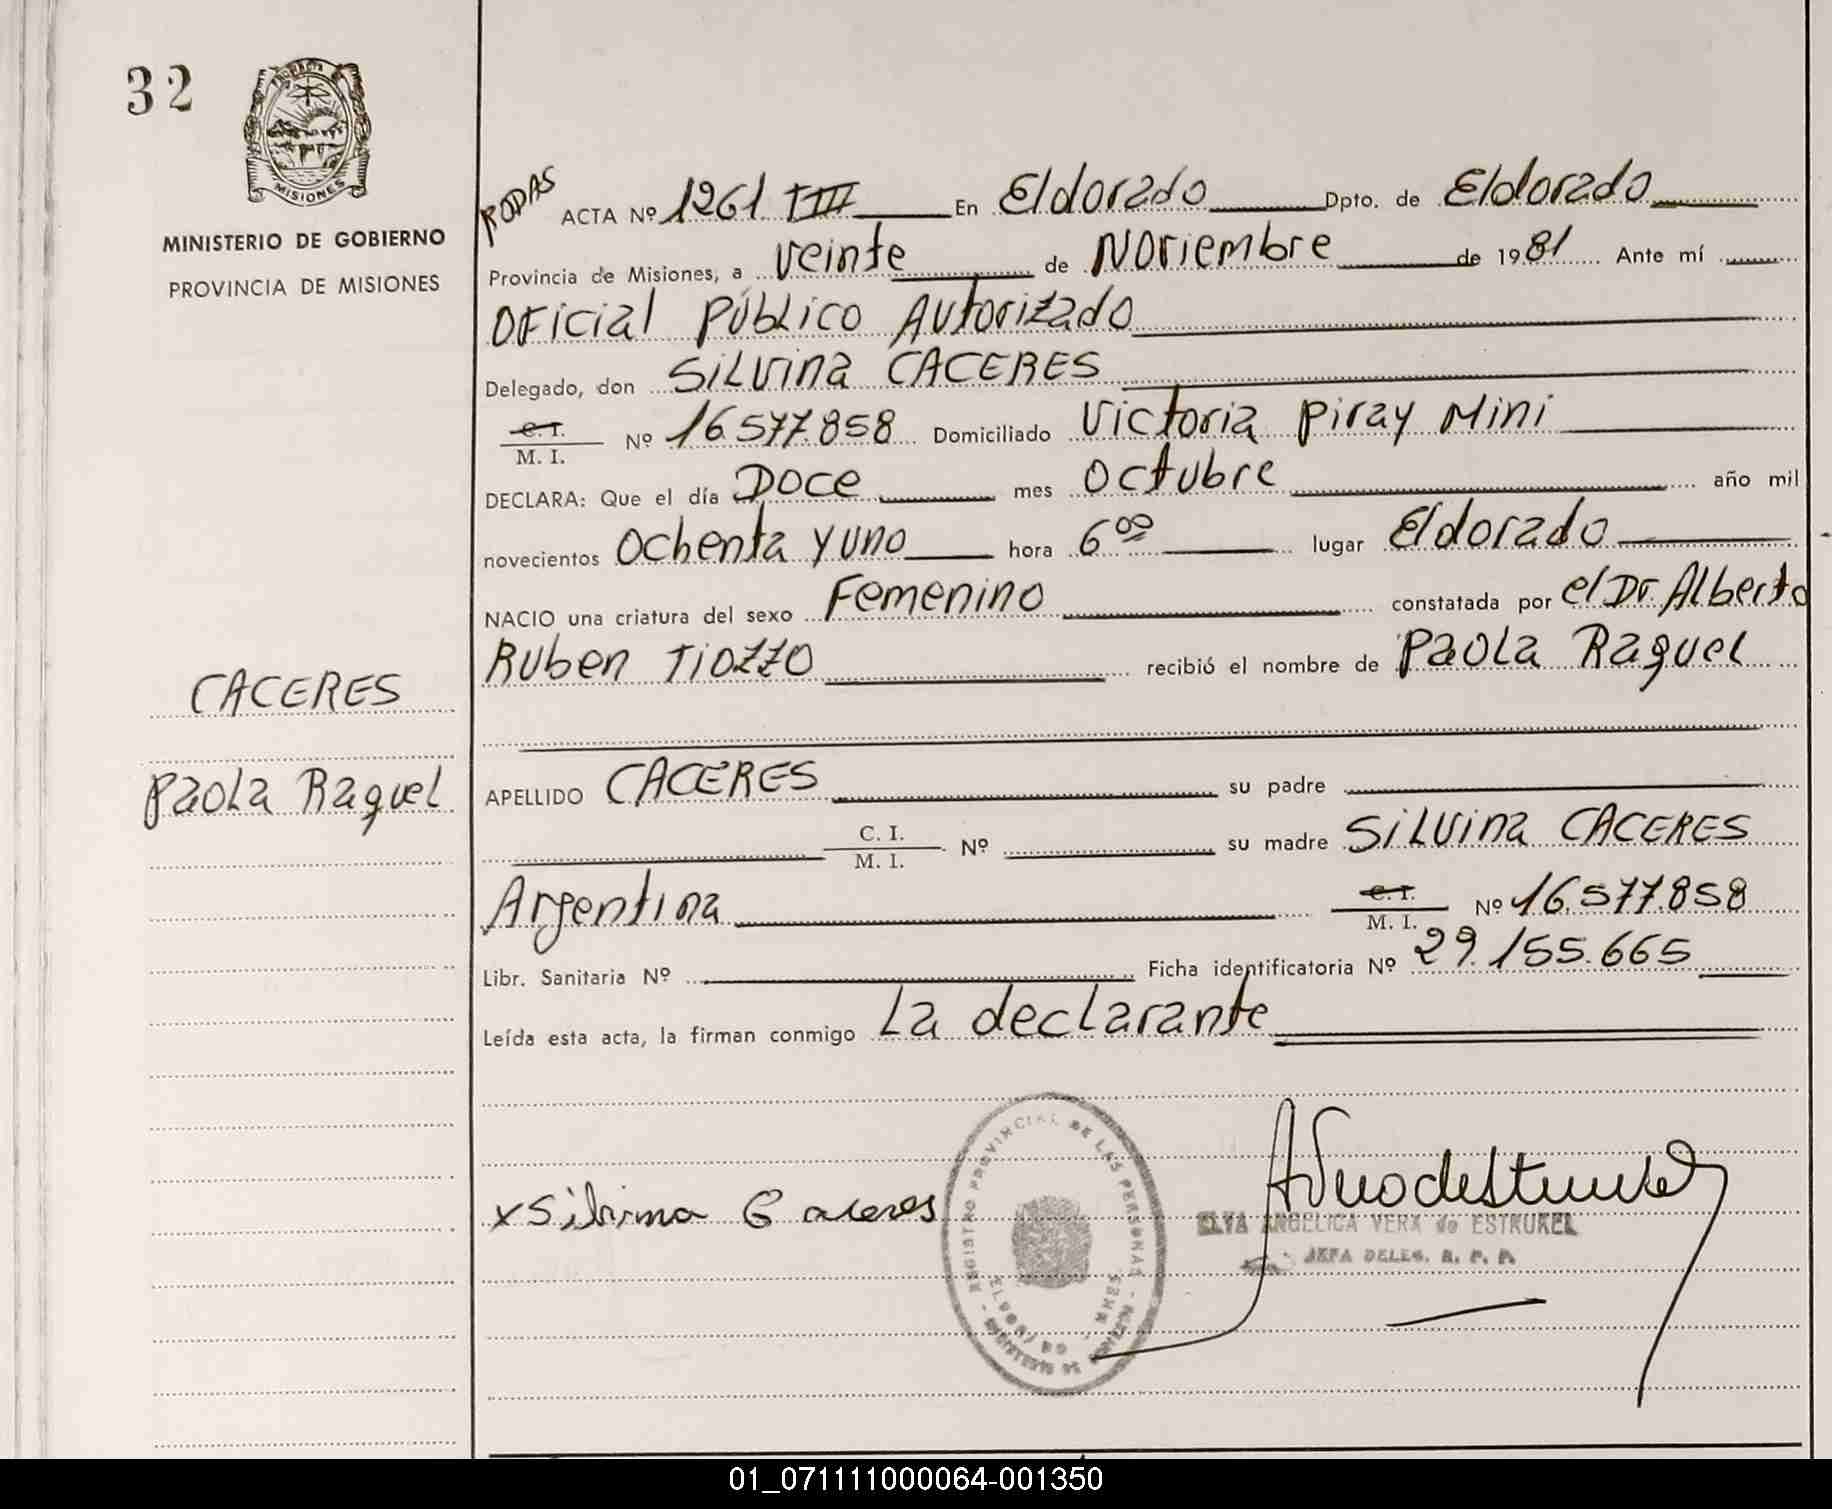 32
PROVINCIA
MISIONES
MINISTERIO DE GOBIERNO
PROVINCIA DE MISIONES
CACERES
Paola Raquel
RODAS
ACTA Nº 1261 TIII En Eldorado Dpto. de Eldorado
Provincia de Misiones, a veinte de Noviembre de 1981 Ante mí
Oficial Público Autorizado
Delegado, don Silvina CACERES
C. I.
M. I. Nº 16.577.858 Domiciliado Victoria Piray Mini
DECLARA: Que el día Doce mes Octubre año mil
novecientos Ochenta y uno hora 6 00 lugar Eldorado
NACIO una criatura del sexo Femenino constatada por el Dr. Alberto
Ruben TIOZZO recibió el nombre de Paola Raquel
APELLIDO CACERES su padre
C. I.
M. I. Nº su madre Silvina CACERES
Argentina C. I.
M. I. Nº 16.577.858
Libr. Sanitaria Nº Ficha identificatoria Nº 29.155.665
Leída esta acta, la firman conmigo La declarante
x Silvina Caceres
REGISTRO PROVINCIAL DE LAS PERSONAS
ELVA ANGELICA VERA de ESTRUKEL
JEFA DELEG. R. P. P.
01_071111000064-001350